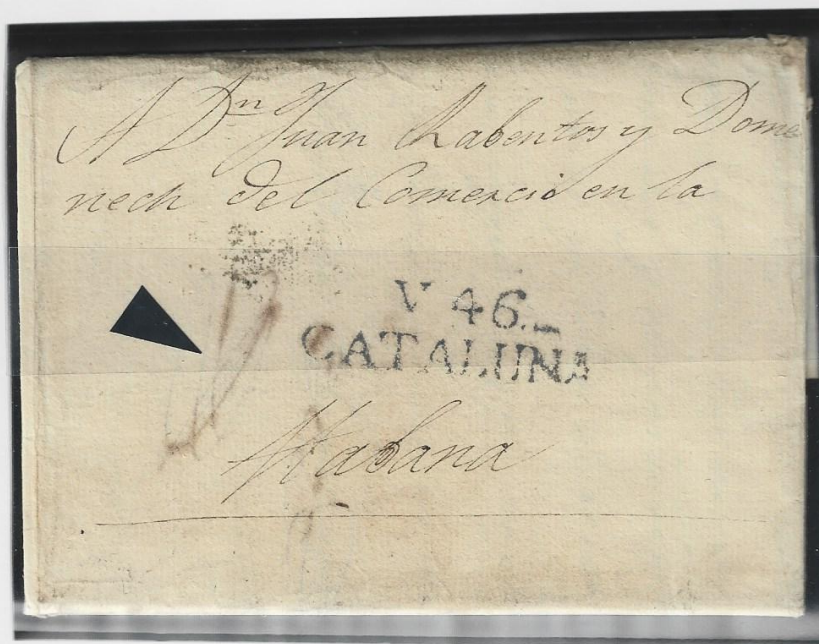 A Dn Juan Rabentos y Dome
nech del Comercio en la
V 46.
CATALUNA
Habana